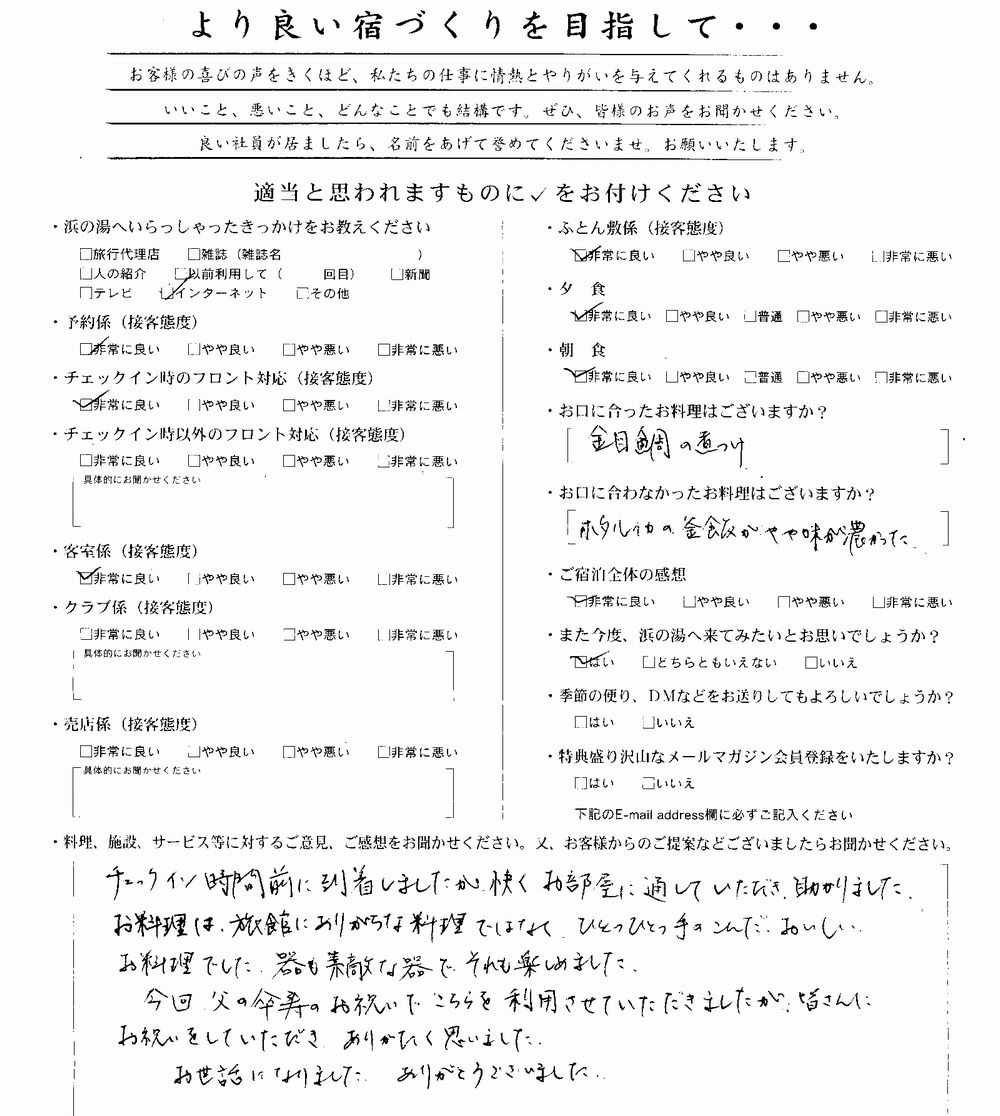 より良い宿づくりを目指して・・・
お客様の喜びの声をきくほど、私たちの仕事に情熱とやりがいを与えてくれるものはありません。
いいこと、悪いこと、どんなことでも結構です。ぜひ、皆様のお声をお聞かせください。
良い社員が居ましたら、名前をあげて誉めてくださいませ。お願いいたします。
適当と思われますものに✓をお付けください
・浜の湯へいらっしゃったきっかけをお教えください
□旅行代理店 □雑誌（雑誌名 ）
□人の紹介 □以前利用して（ 回目） □新聞
□テレビ ☑インターネット □その他
・予約係（接客態度）
☑非常に良い □やや良い □やや悪い □非常に悪い
・チェックイン時のフロント対応（接客態度）
☑非常に良い □やや良い □やや悪い □非常に悪い
・チェックイン時以外のフロント対応（接客態度）
□非常に良い □やや良い □やや悪い □非常に悪い
具体的にお聞かせください
・客室係（接客態度）
☑非常に良い □やや良い □やや悪い □非常に悪い
・クラブ係（接客態度）
□非常に良い □やや良い □やや悪い □非常に悪い
具体的にお聞かせください
・売店係（接客態度）
□非常に良い □やや良い □やや悪い □非常に悪い
具体的にお聞かせください
・ふとん敷係（接客態度）
☑非常に良い □やや良い □やや悪い □非常に悪い
・夕 食
☑非常に良い □やや良い □普通 □やや悪い □非常に悪い
・朝 食
☑非常に良い □やや良い □普通 □やや悪い □非常に悪い
・お口に合ったお料理はございますか？
金目鯛の煮つけ
・お口に合わなかったお料理はございますか？
ホタルイカの釜飯がやや味が濃かった
・ご宿泊全体の感想
☑非常に良い □やや良い □やや悪い □非常に悪い
・また今度、浜の湯へ来てみたいとお思いでしょうか？
☑はい □どちらともいえない □いいえ
・季節の便り、DMなどをお送りしてもよろしいでしょうか？
□はい □いいえ
・特典盛り沢山なメールマガジン会員登録をいたしますか？
□はい □いいえ
下記のE-mail address欄に必ずご記入ください
・料理、施設、サービス等に対するご意見、ご感想をお聞かせください。又、お客様からのご提案などございましたらお聞かせください。
チェックイン時間前に到着しましたが、快くお部屋に通していただき、助かりました。
お料理は、旅館にありがちな料理ではなく、ひとつひとつ手のこんだ、おいしい
お料理でした。器も素敵な器で、それも楽しめました。
今回、父の傘寿のお祝いでこちらを利用させていただきましたが、皆さんに
お祝いをしていただき、ありがたく思いました。
お世話になりました。ありがとうございました。